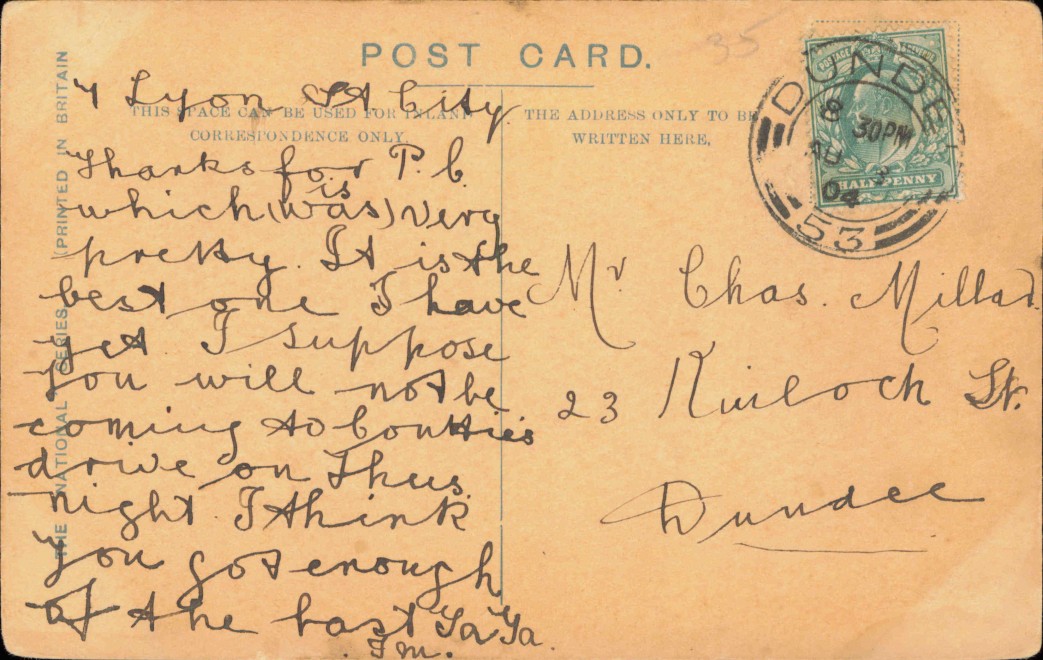 POST CARD.
35
THIS SPACE CAN BE USED FOR INLAND
CORRESPONDENCE ONLY.
THE ADDRESS ONLY TO BE
WRITTEN HERE.
THE NATIONAL SERIES (PRINTED IN BRITAIN
7 Lyon St City
Thanks for P. C.
is
which (was) very
pretty. It is the
best one I have
yet I suppose
you will not be
coming to
drive on Thus.
night. I think
you got enough
of the last Ta Ta.
DUNDEE
6 30PM
AU 3
04
53
HALFPENNY
Mr Chas. Millar
23 Kinloch St.
Dundee